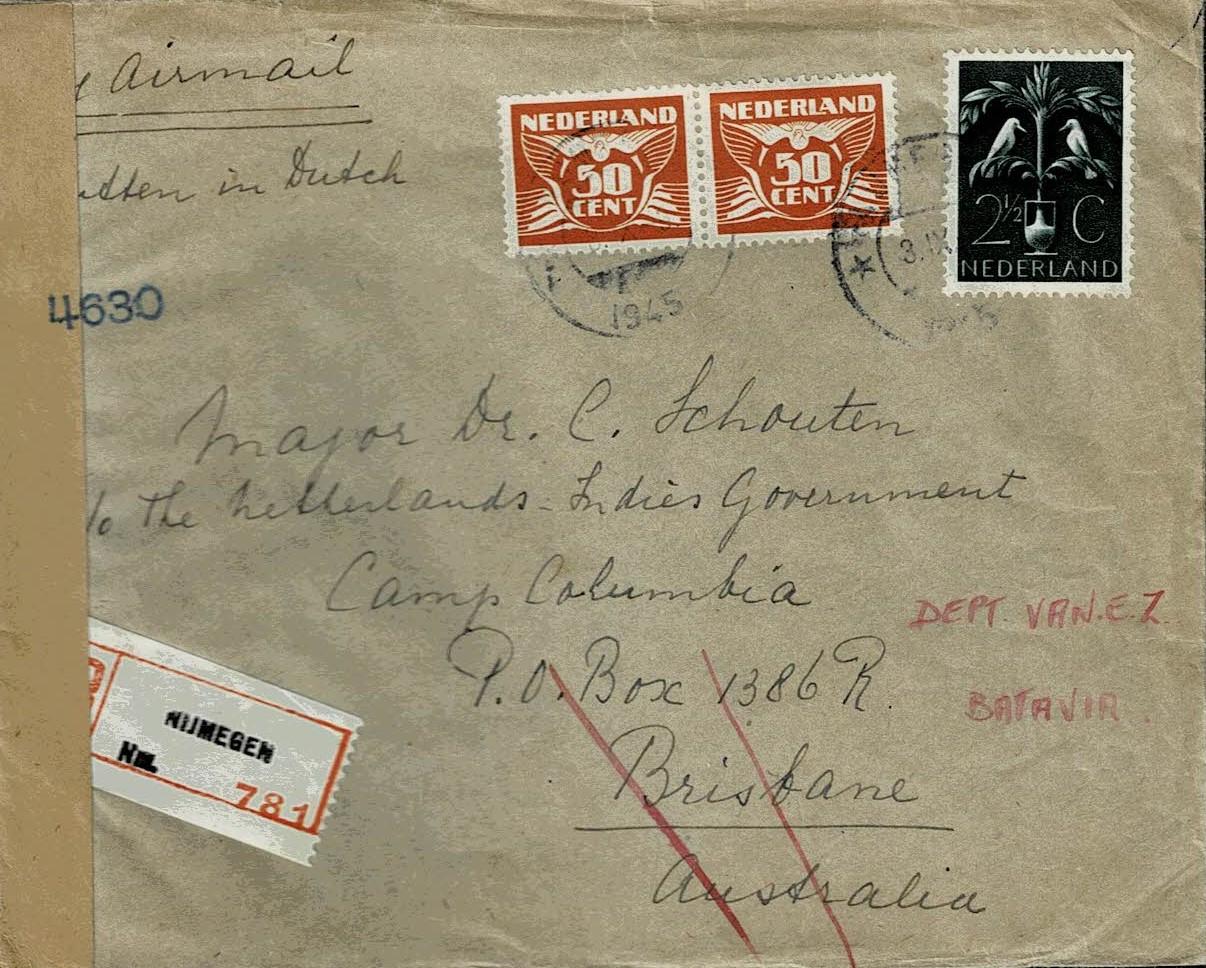 Airmail
in Dutch
NEDERLAND
50
CENT
NEDERLAND
50
CENT
2½ C
NEDERLAND
1945
3.IX
4630
Major Dr. C. Schouten
c/o The Netherlands-Indies Government
Camp Columbia
P.O. Box 1386 R.
Brisbane
Australia
DEPT. VAN. E. Z.
BATAVIA.
NIJMEGEN
781